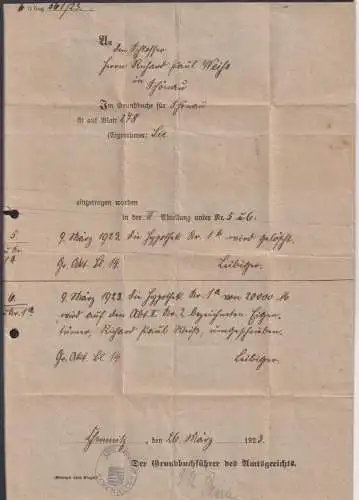 An
den Schlosser
Herrn Richard Paul Weiß
in
Schönau
Im Grundbuche für Schönau
ist auf Blatt 278
(Eigentümer: Sie
eingetragen worden
in der II Abteilung unter Nr. 5 u 6.
5 9. März 1923 die Hypothek Nr. 1 b wird gelöscht.
Gr. Akt. Bl. 14. Lübiger.
6. 9. März 1923. die Hypothek Nr. 1a von 20000 M
wird auf den Abt. I Nr. 2 bezeichneten Eigen
tümer, Richard Paul Weiß, umgeschrieben.
Gr. Akt. Bl. 14 Lübiger.
Chemnitz, den 26. März 1923.
Der Grundbuchführer des Amtsgerichts.